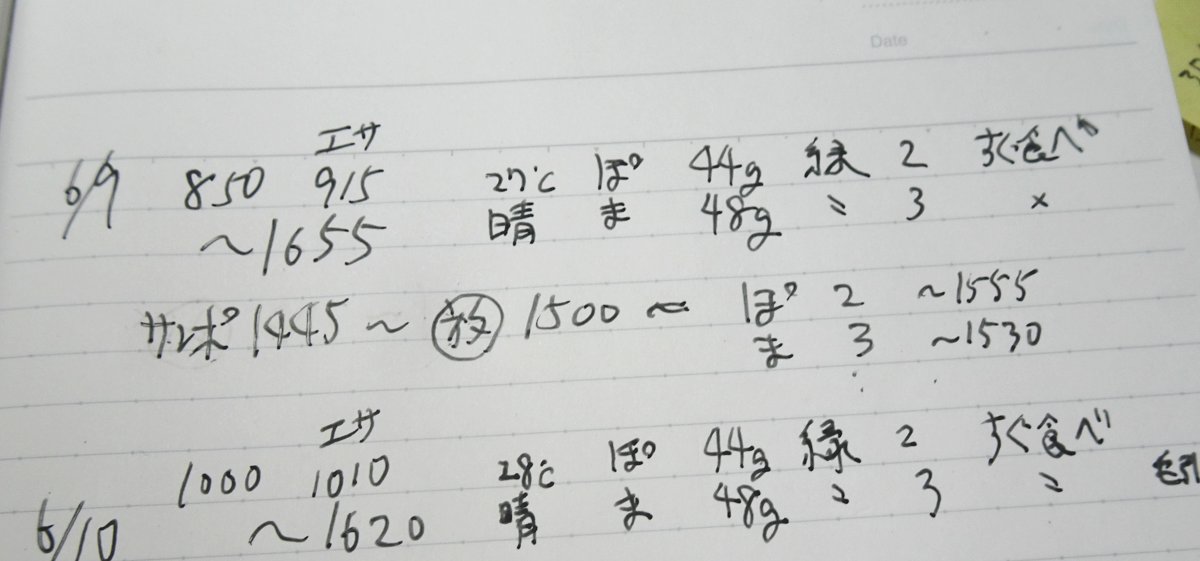 Date
エサ
6/9 850 915 27℃ ぽ 44g 緑 2 すぐ食べ
~1655 晴 ま 48g 〃 3 ×
サンポ 1445~ 放 1500~ ぽ 2 ~1555
ま 3 ~1530
エサ
1000 1010 28℃ ぽ 44g 緑 2 すぐ食べ
6/10 ~1620 晴 ま 48g 〃 3 〃